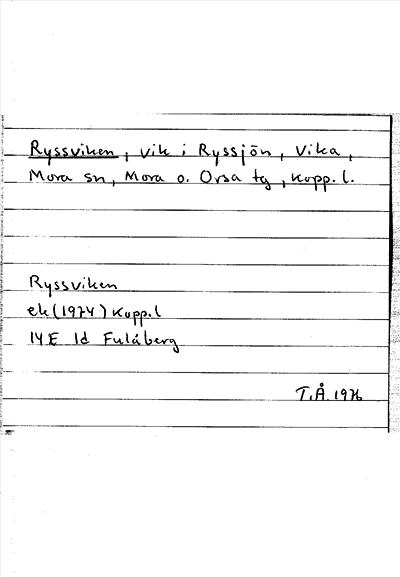 Ryssviken, vik i Ryssjön, Vika,
Mora sn, Mora o. Orsa tg, Kopp. l.
Ryssviken
ek (1974) Kopp. l
14E 1d Fulåberg
T.Å. 1976